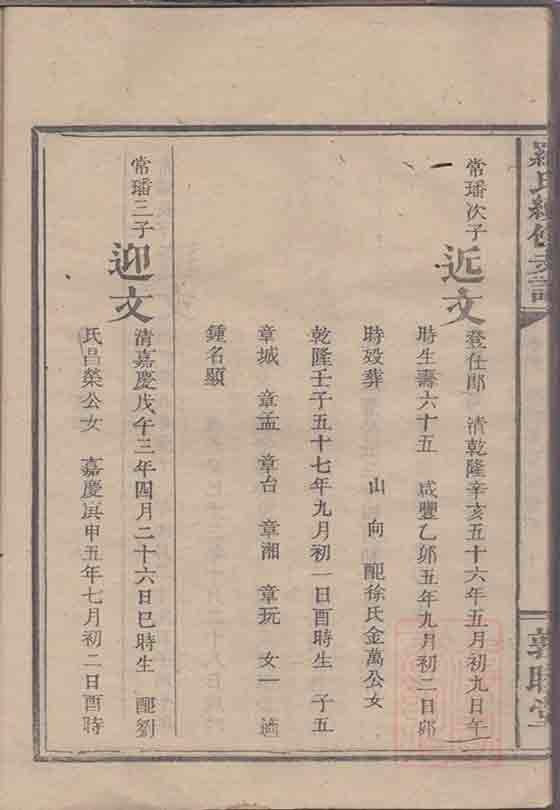 羅氏續修支譜
敦睦堂
常璠次子
近文
登仕郎 清乾隆辛亥五十六年五月初九日午
時生壽六十五 咸豐乙卯五年九月初二日卯
時殁葬 山 向 配徐氏金萬公女
乾隆壬子五十七年九月初一日酉時生 子五
章城 章孟 章台 章湘 章玩 女一 適
鍾名顯
常璠三子
迎文
清嘉慶戊午三年四月二十六日巳時生 配劉
氏昌榮公女 嘉慶庚申五年七月初二日酉時